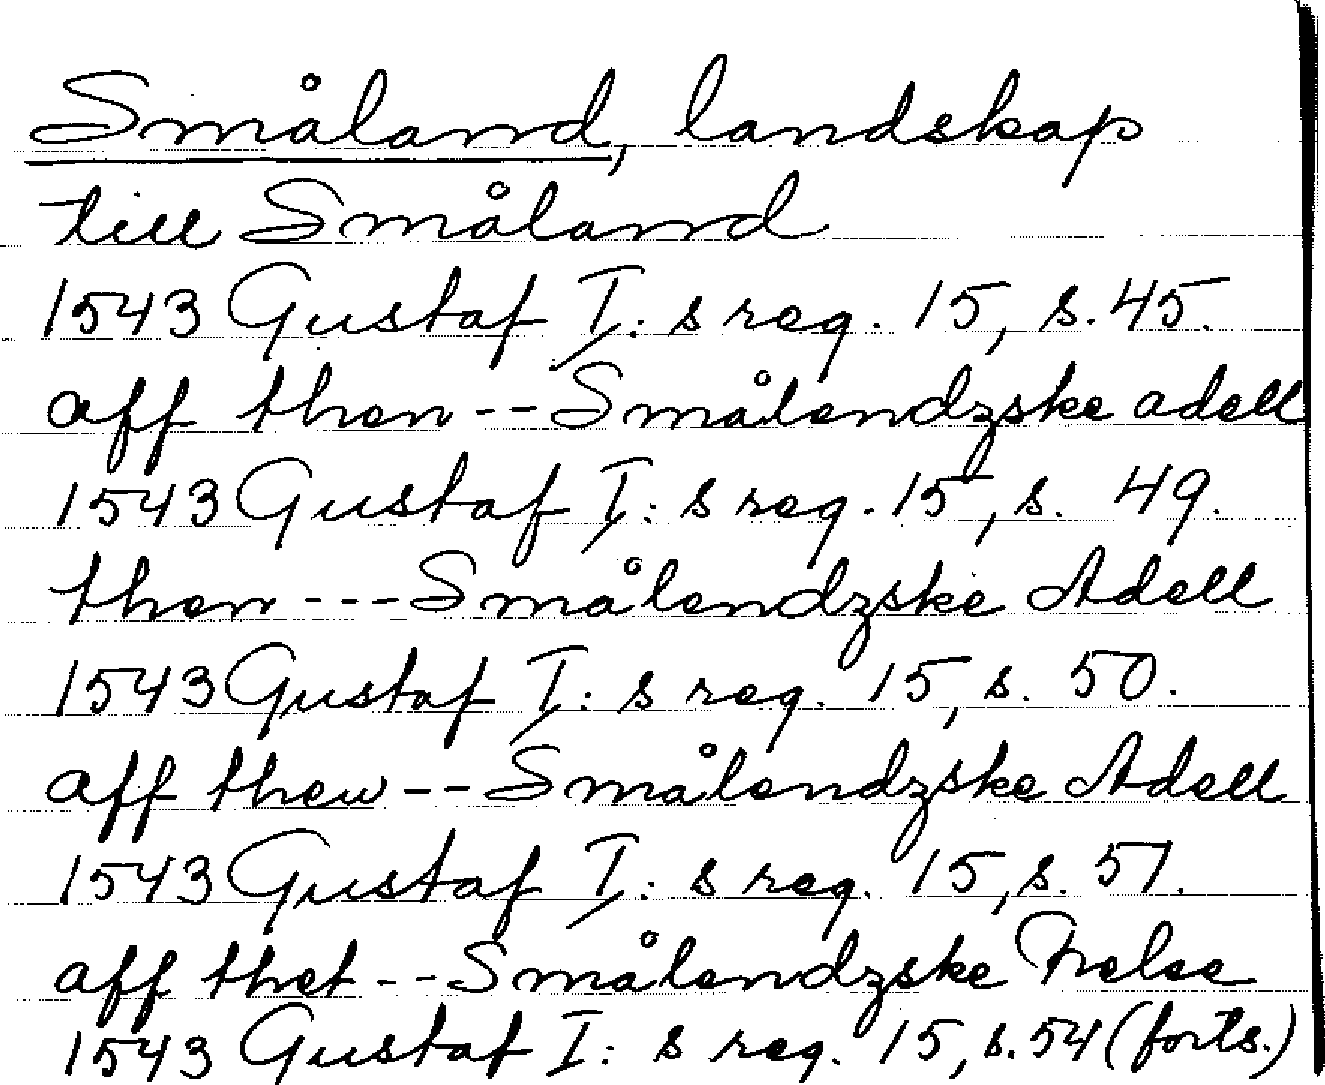 Småland, landskap
till Småland
1543 Gustaf I: s reg. 15, s. 45.
aff then -- Smålendzske adell
1543 Gustaf I: s reg. 15, s. 49.
then --- Smålendzske Adell
1543 Gustaf I: s reg. 15, s. 50.
aff then -- Smålendzske Adell
1543 Gustaf I: s reg. 15, s. 51.
aff thet -- Smålendzske Frelse
1543 Gustaf I: s reg. 15, s. 54 (forts.)